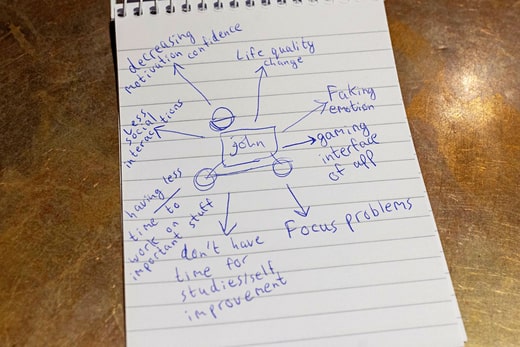 decreasing
motivation confidence
Life quality
change
Faking
emotion
Less
social
interactions
john
gaming
interface
of app
having less
time to
work on
important stuff
don't have
time for
studies/self
improvement
Focus problems